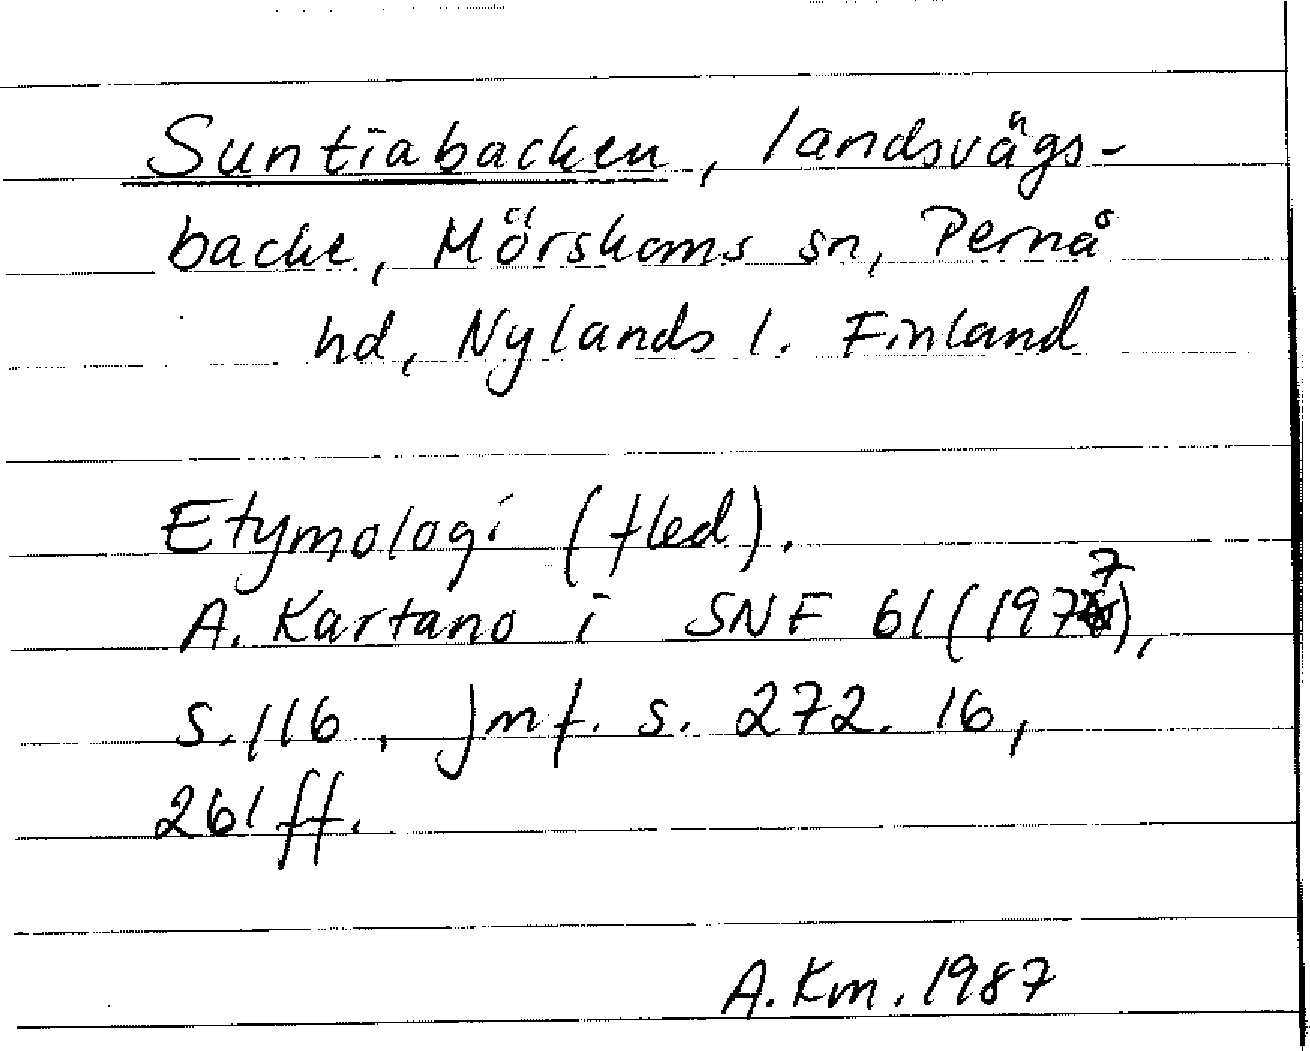 Suntiabacken, landsvägs-
backe, Mörskoms sn, Pernå
hd, Nylands l. Finland
Etymologi (fled).
A. Kartano i SNF 61 (1977),
s. 116, jmf. s. 272. 16,
261 ff.
A. Km. 1987